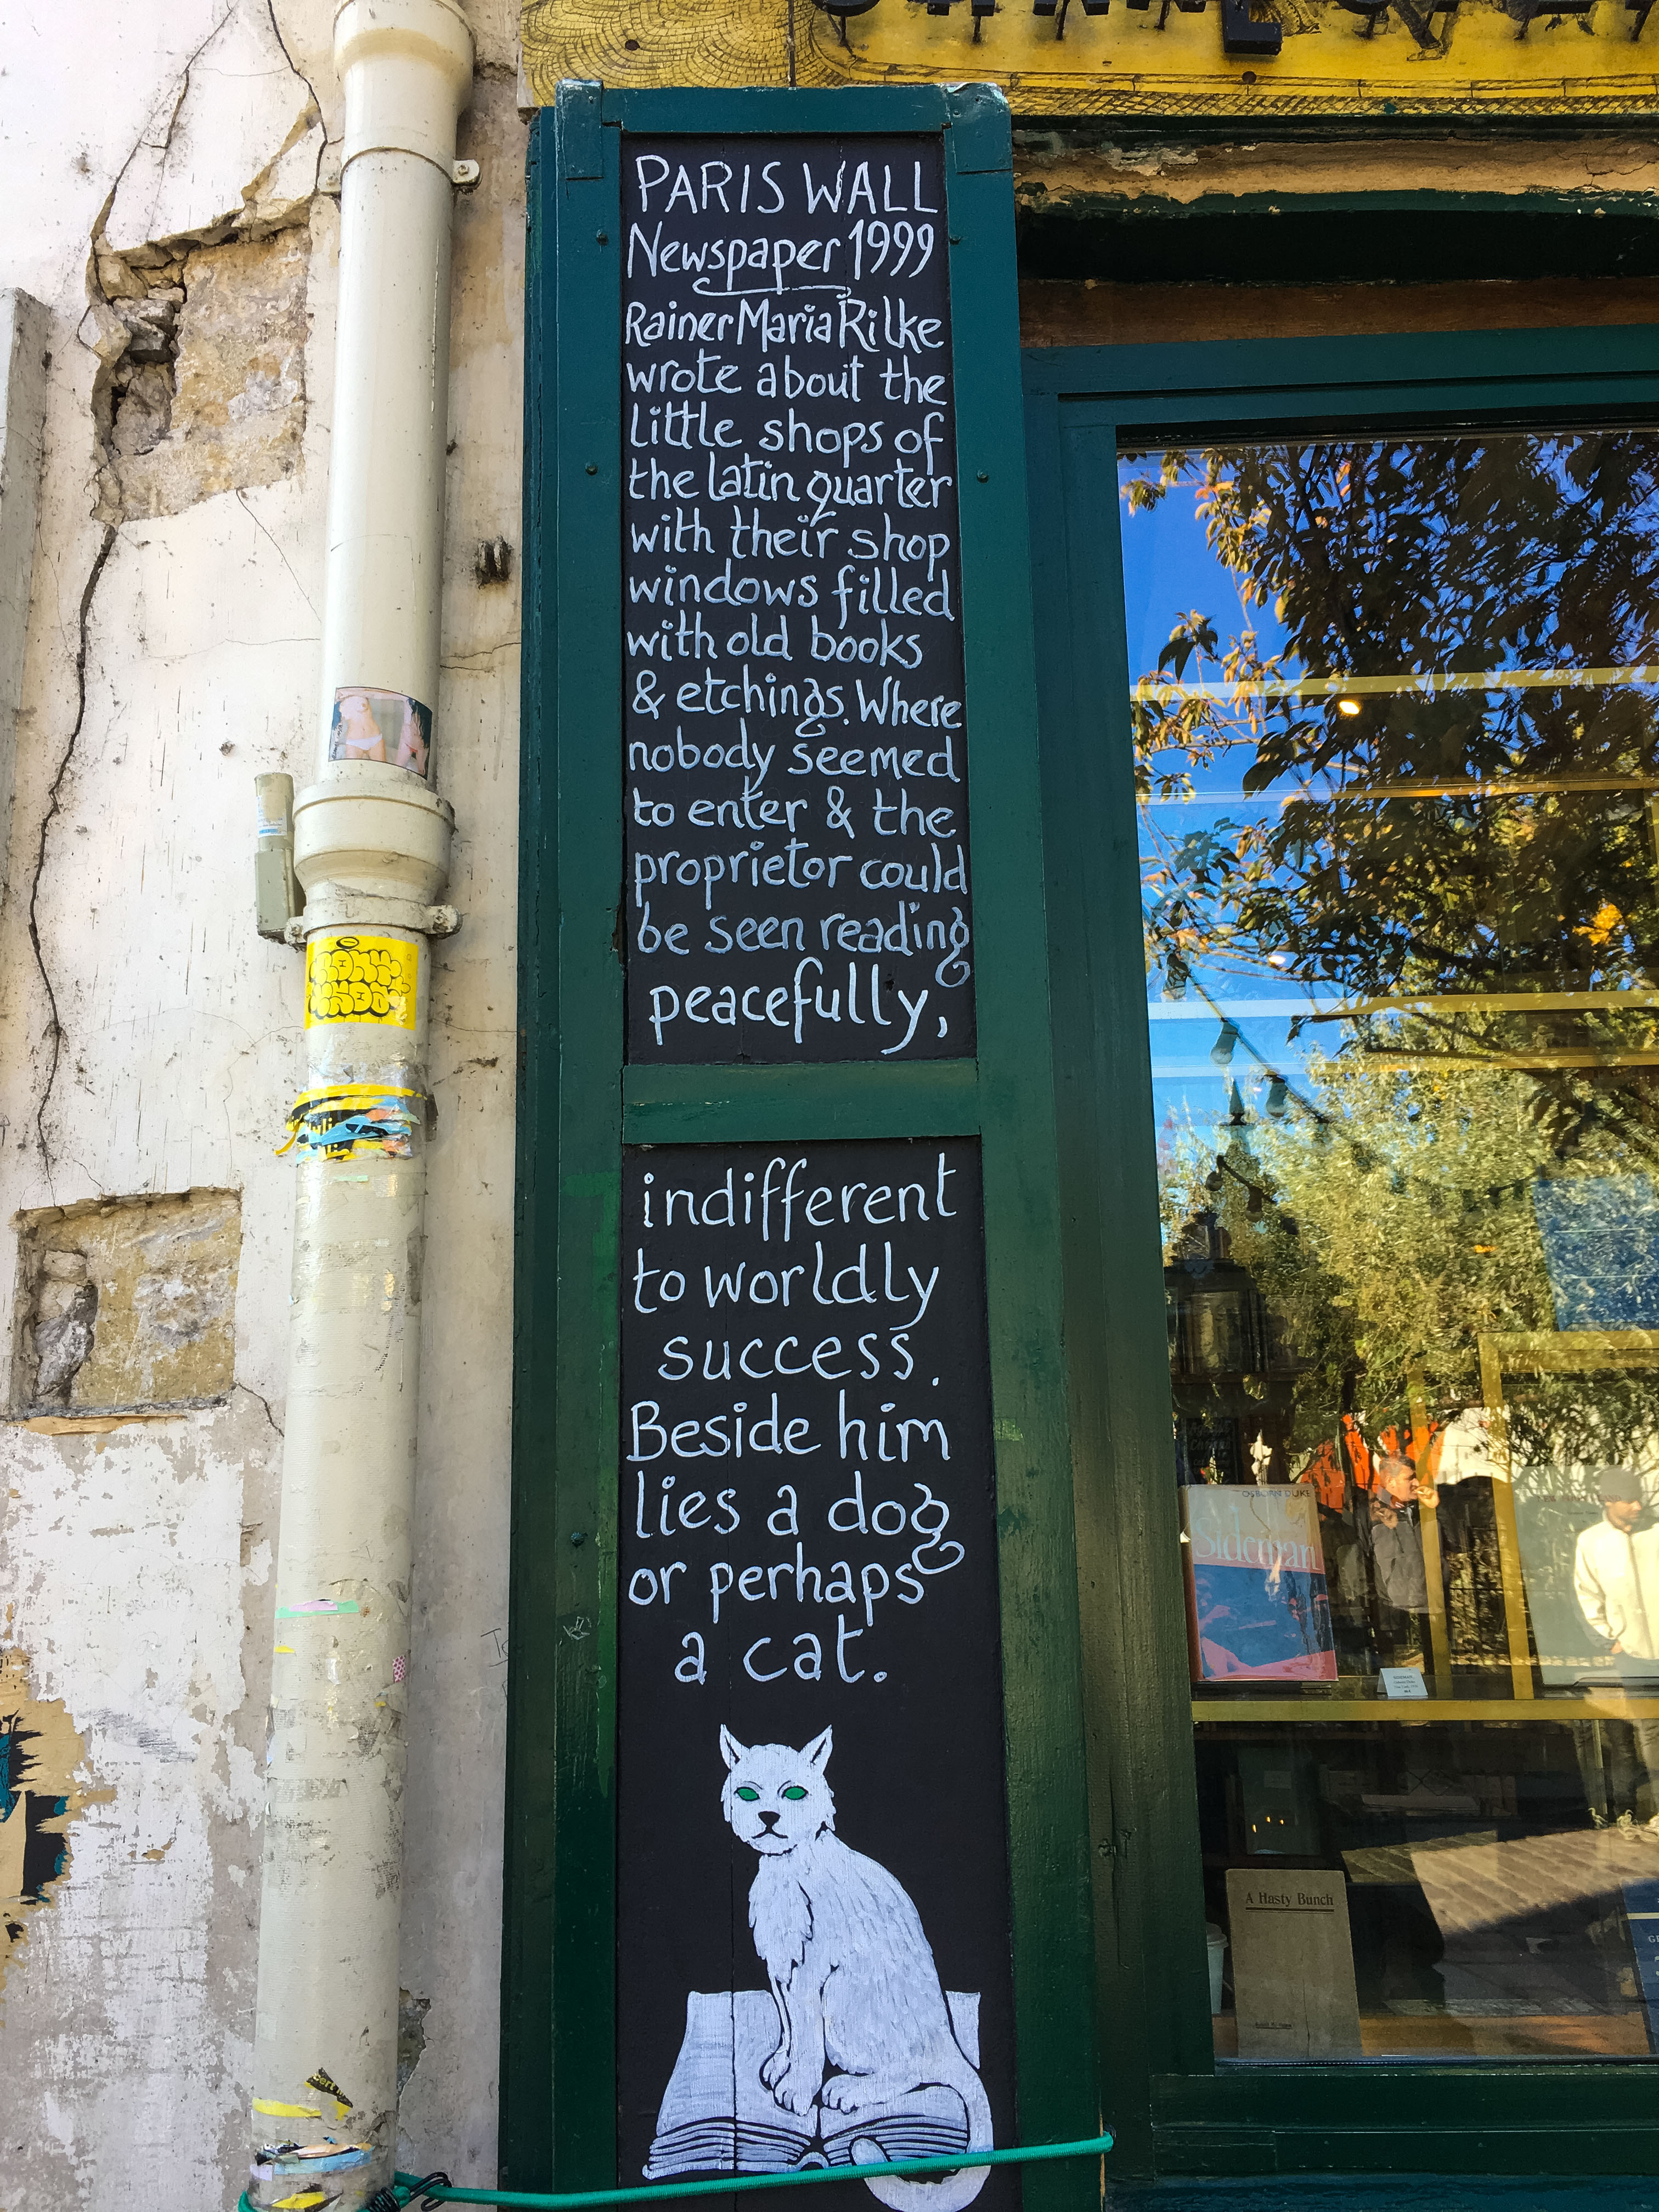 PARIS WALL
Newspaper 1999
Rainer Maria Rilke
wrote about the
little shops of
the latin quarter
with their shop
windows filled
with old books
& etchings. Where
nobody seemed
to enter & the
proprietor could
be seen reading
peacefully,
indifferent
to worldly
success.
Beside him
lies a dog
or perhaps
a cat.
OSBORN DUKE
Sideman
A Hasty Bunch